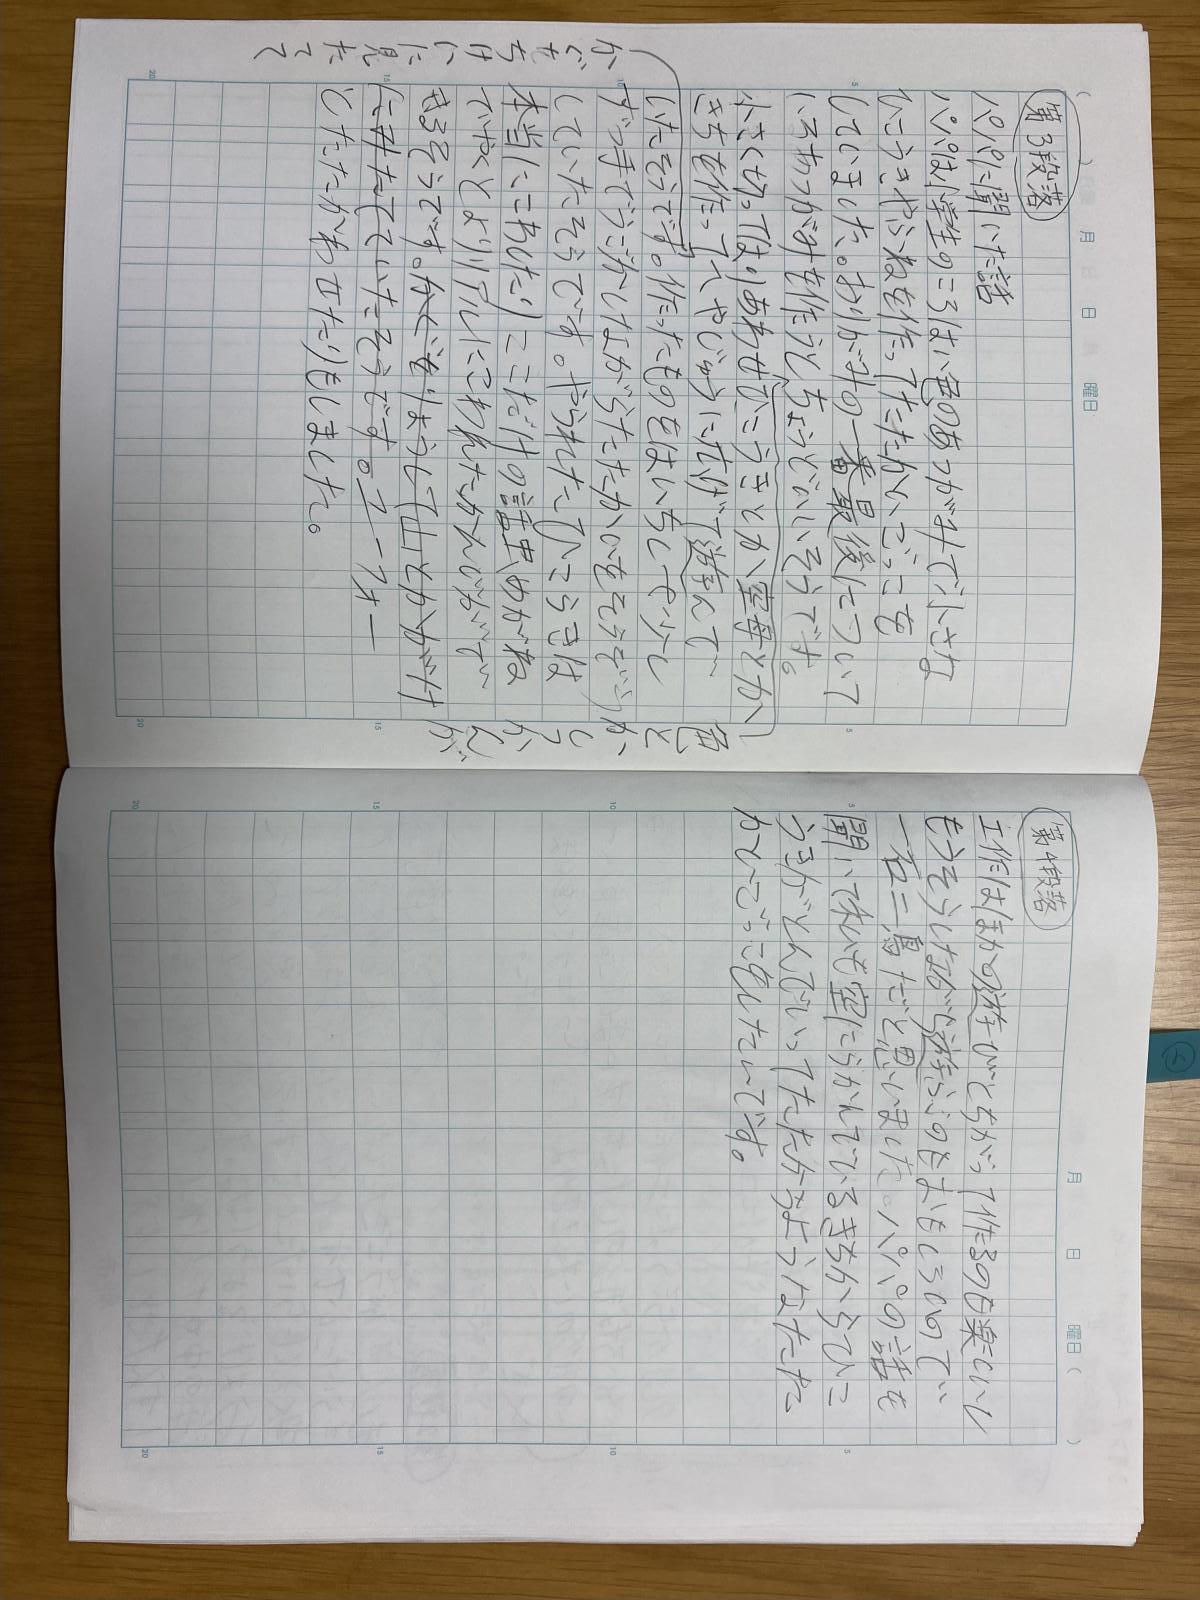 月 日 曜日
第3段落
パパに聞いた話
パパは小学生のころはい色のあつがみで小さな
ひこうきやふねを作ってたたかいごっこを
していました。おりがみの一番最後についてい
いるあつがみを作うとちょうどいいそうです。
小さく切ってはりあわせひこうきとか空母とか
きちを作ってへやじゅうに広げて遊んで
いたそうです。作ったものをはいちして少し
ずつうごかしながらたたかいをそうぞう
していたそうです。やられたひこうきは
本当にこわしたりこだけの虫めがね
でやくとよりリアルにこわれたかんじがで
きるそうです。かぐをりようして山とかがけ
に見たてていたそうです。ユーフォー
とたたかわせたりもしました。
かぐをちけいに見たてて
5
10
15
20
月 日 曜日
第4段落
工作はほかの遊びとちがって作るのも楽しいし
もうそうしながら遊ぶのもおもしろいので
一石二鳥だと思いました。パパの話を
聞いてわたしも空にうかんでいるきちからひこ
うきがとんでいってたたかうようなたた
かいごっこをしたいです。
5
10
15
20